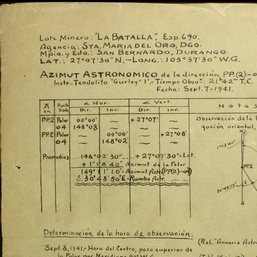 Lote Minero: "LA BATALLA", Exp. 690.
Agencia: STA. MARIA DEL ORO, DGO.
Mpio. y Edo: SAN BERNARDO, DURANGO.
LAT.: 27°07'30"N, - LONG.: 105°37'30" W.G.
AZIMUT ASTRONOMICO de la dirección, PP.(2)-0
Instr. Teodolito "Gurley" 1' - Tiempo Obsv: 21h42m T.C.
Fecha: Sept. 7 - 1941.
< Hor: < Vert NOTAS
Dir. Inv. Dir. Inv.
PP.2 Polar 00°00' +27°07' Observación de la
04 148°03' gación oriental,
PP.2 Polar 00°00' +27°08'
04 148°02'
Promedios 148°02'30" +27°07'30" = Lat.
+1°08'40" Azimut de la Polar
149°11'10" = Azimut Astr. (PP(2)-04)
S 30°48'50"E = Rumbo Astr.
Determinación de la hora de observación:
Sept. 8, 1941 - Hora del Centro, paso superior de (Ref. "Anuario Astro
la Polar por Meridiano